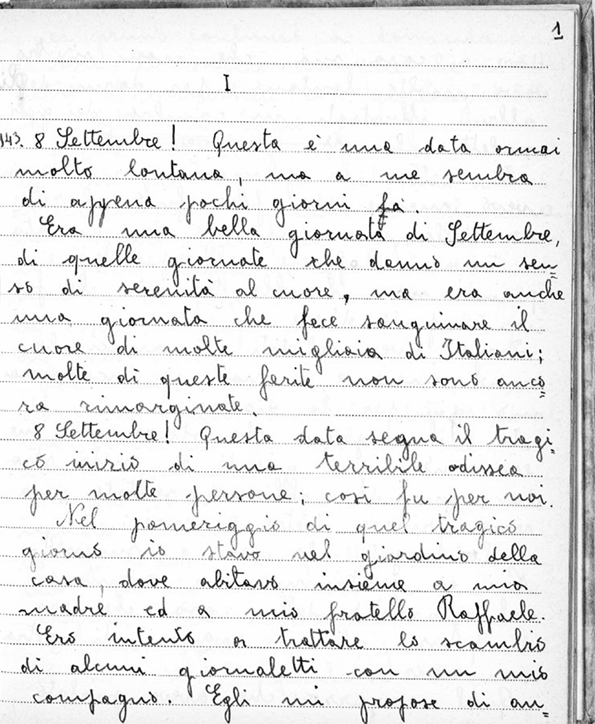 1
I
943. 8 Settembre! Questa è una data ormai
molto lontana, ma a me sembra
di appena pochi giorni fa.
Era una bella giornata di Settembre,
di quelle giornate che danno un sen=
so di serenità al cuore, ma era anche
una giornata che fece sanguinare il
cuore di molte migliaia di Italiani;
molte di queste ferite non sono anco=
ra rimarginate.
8 Settembre! Questa data segna il tragi=
co inizio di una terribile odissea
per molte persone; così fu per noi.
Nel pomeriggio di quel tragico
giorno io stavo nel giardino della
casa, dove abitavo insieme a mia
madre ed a mio fratello Raffaele.
Ero intento a trattare lo scambio
di alcuni giornaletti con un mio
compagno. Egli mi propose di an=